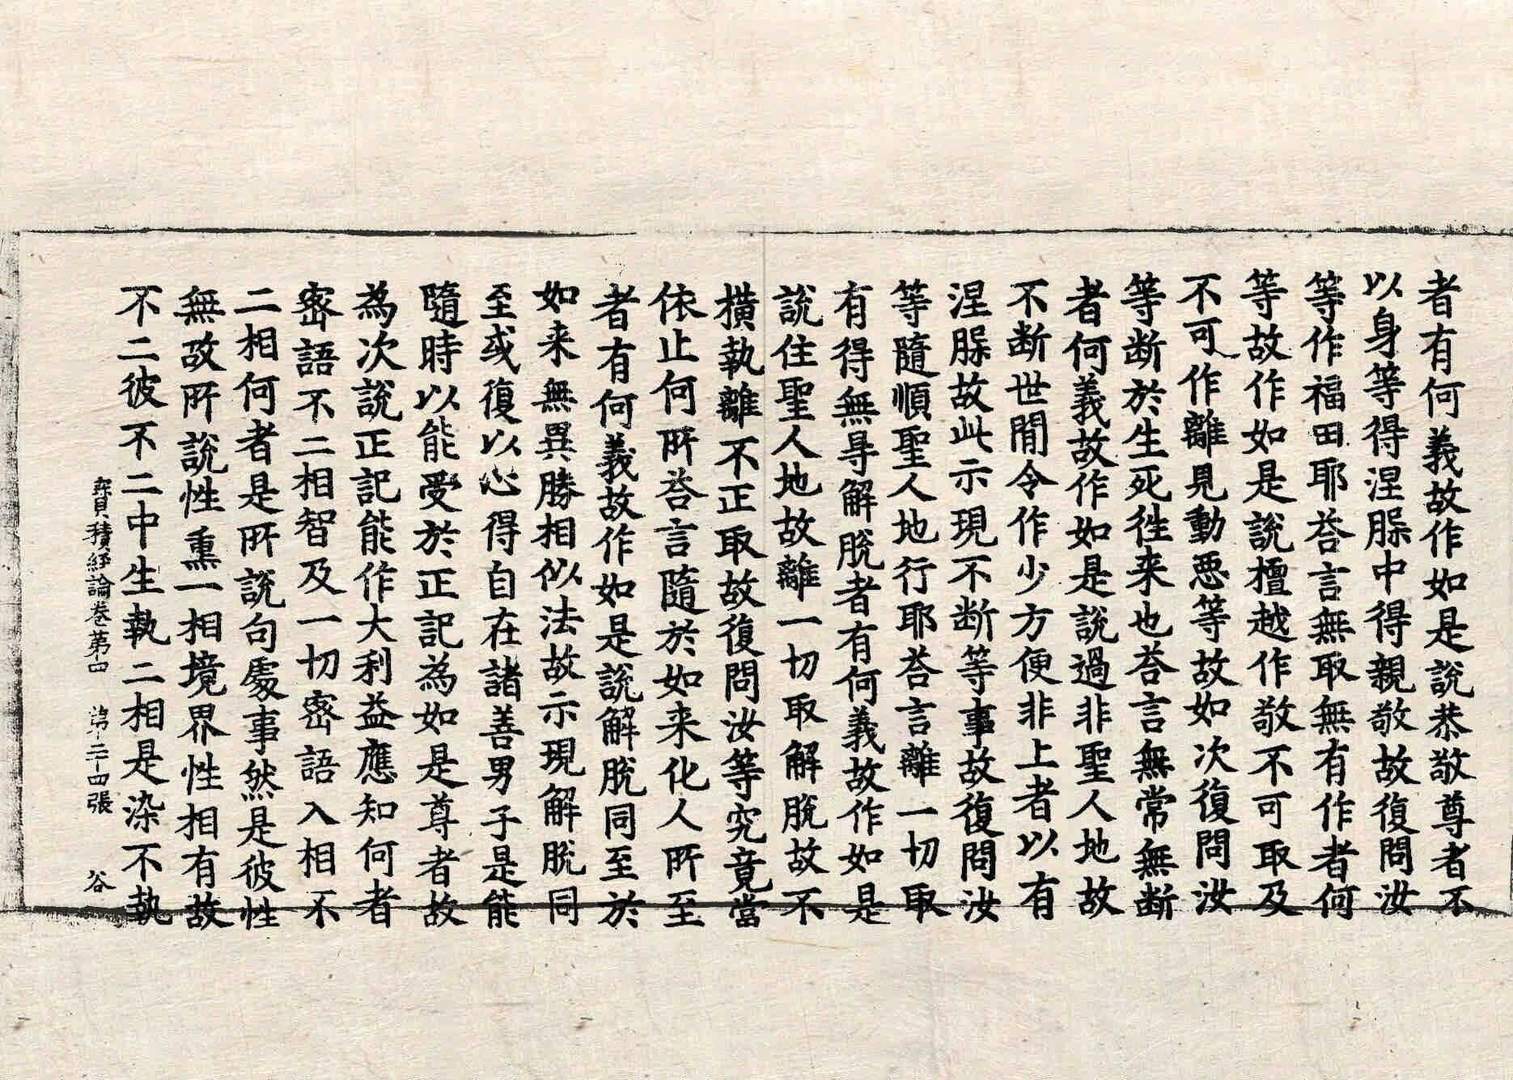 者有何義故作如是說恭敬尊者不
以身等得涅槃中得親敬故復問汝
等作福田耶荅言無取無有作者何
等故作如是說檀越作敬不可取及
不可作離見動惡等故如次復問汝
等断於生死徃来也荅言無常無断
者何義故作如是說過非聖人地故
不断世間令作少方便非上者以有
涅槃故此示現不断等事故復問汝
等隨順聖人地行耶荅言離一切取
有得無㝵解脫者有何義故作如是
說住聖人地故離一切取解脫故不
橫執離不正取故復問汝等究竟當
依止何所荅言隨於如来化人所至
者有何義故作如是說解脫同至於
如来無異勝相似法故示現解脫同
至或復以心得自在諸善男子是能
隨時以能受於正記為如是尊者故
為次說正記能作大利益應知何者
宻語不二相智及一切宻語入相不
二相何者是所說句處事然是彼性
無故所說性熏一相境界性相有故
不二彼不二中生執二相是染不執
寶積經論卷第四 第二十四張 谷